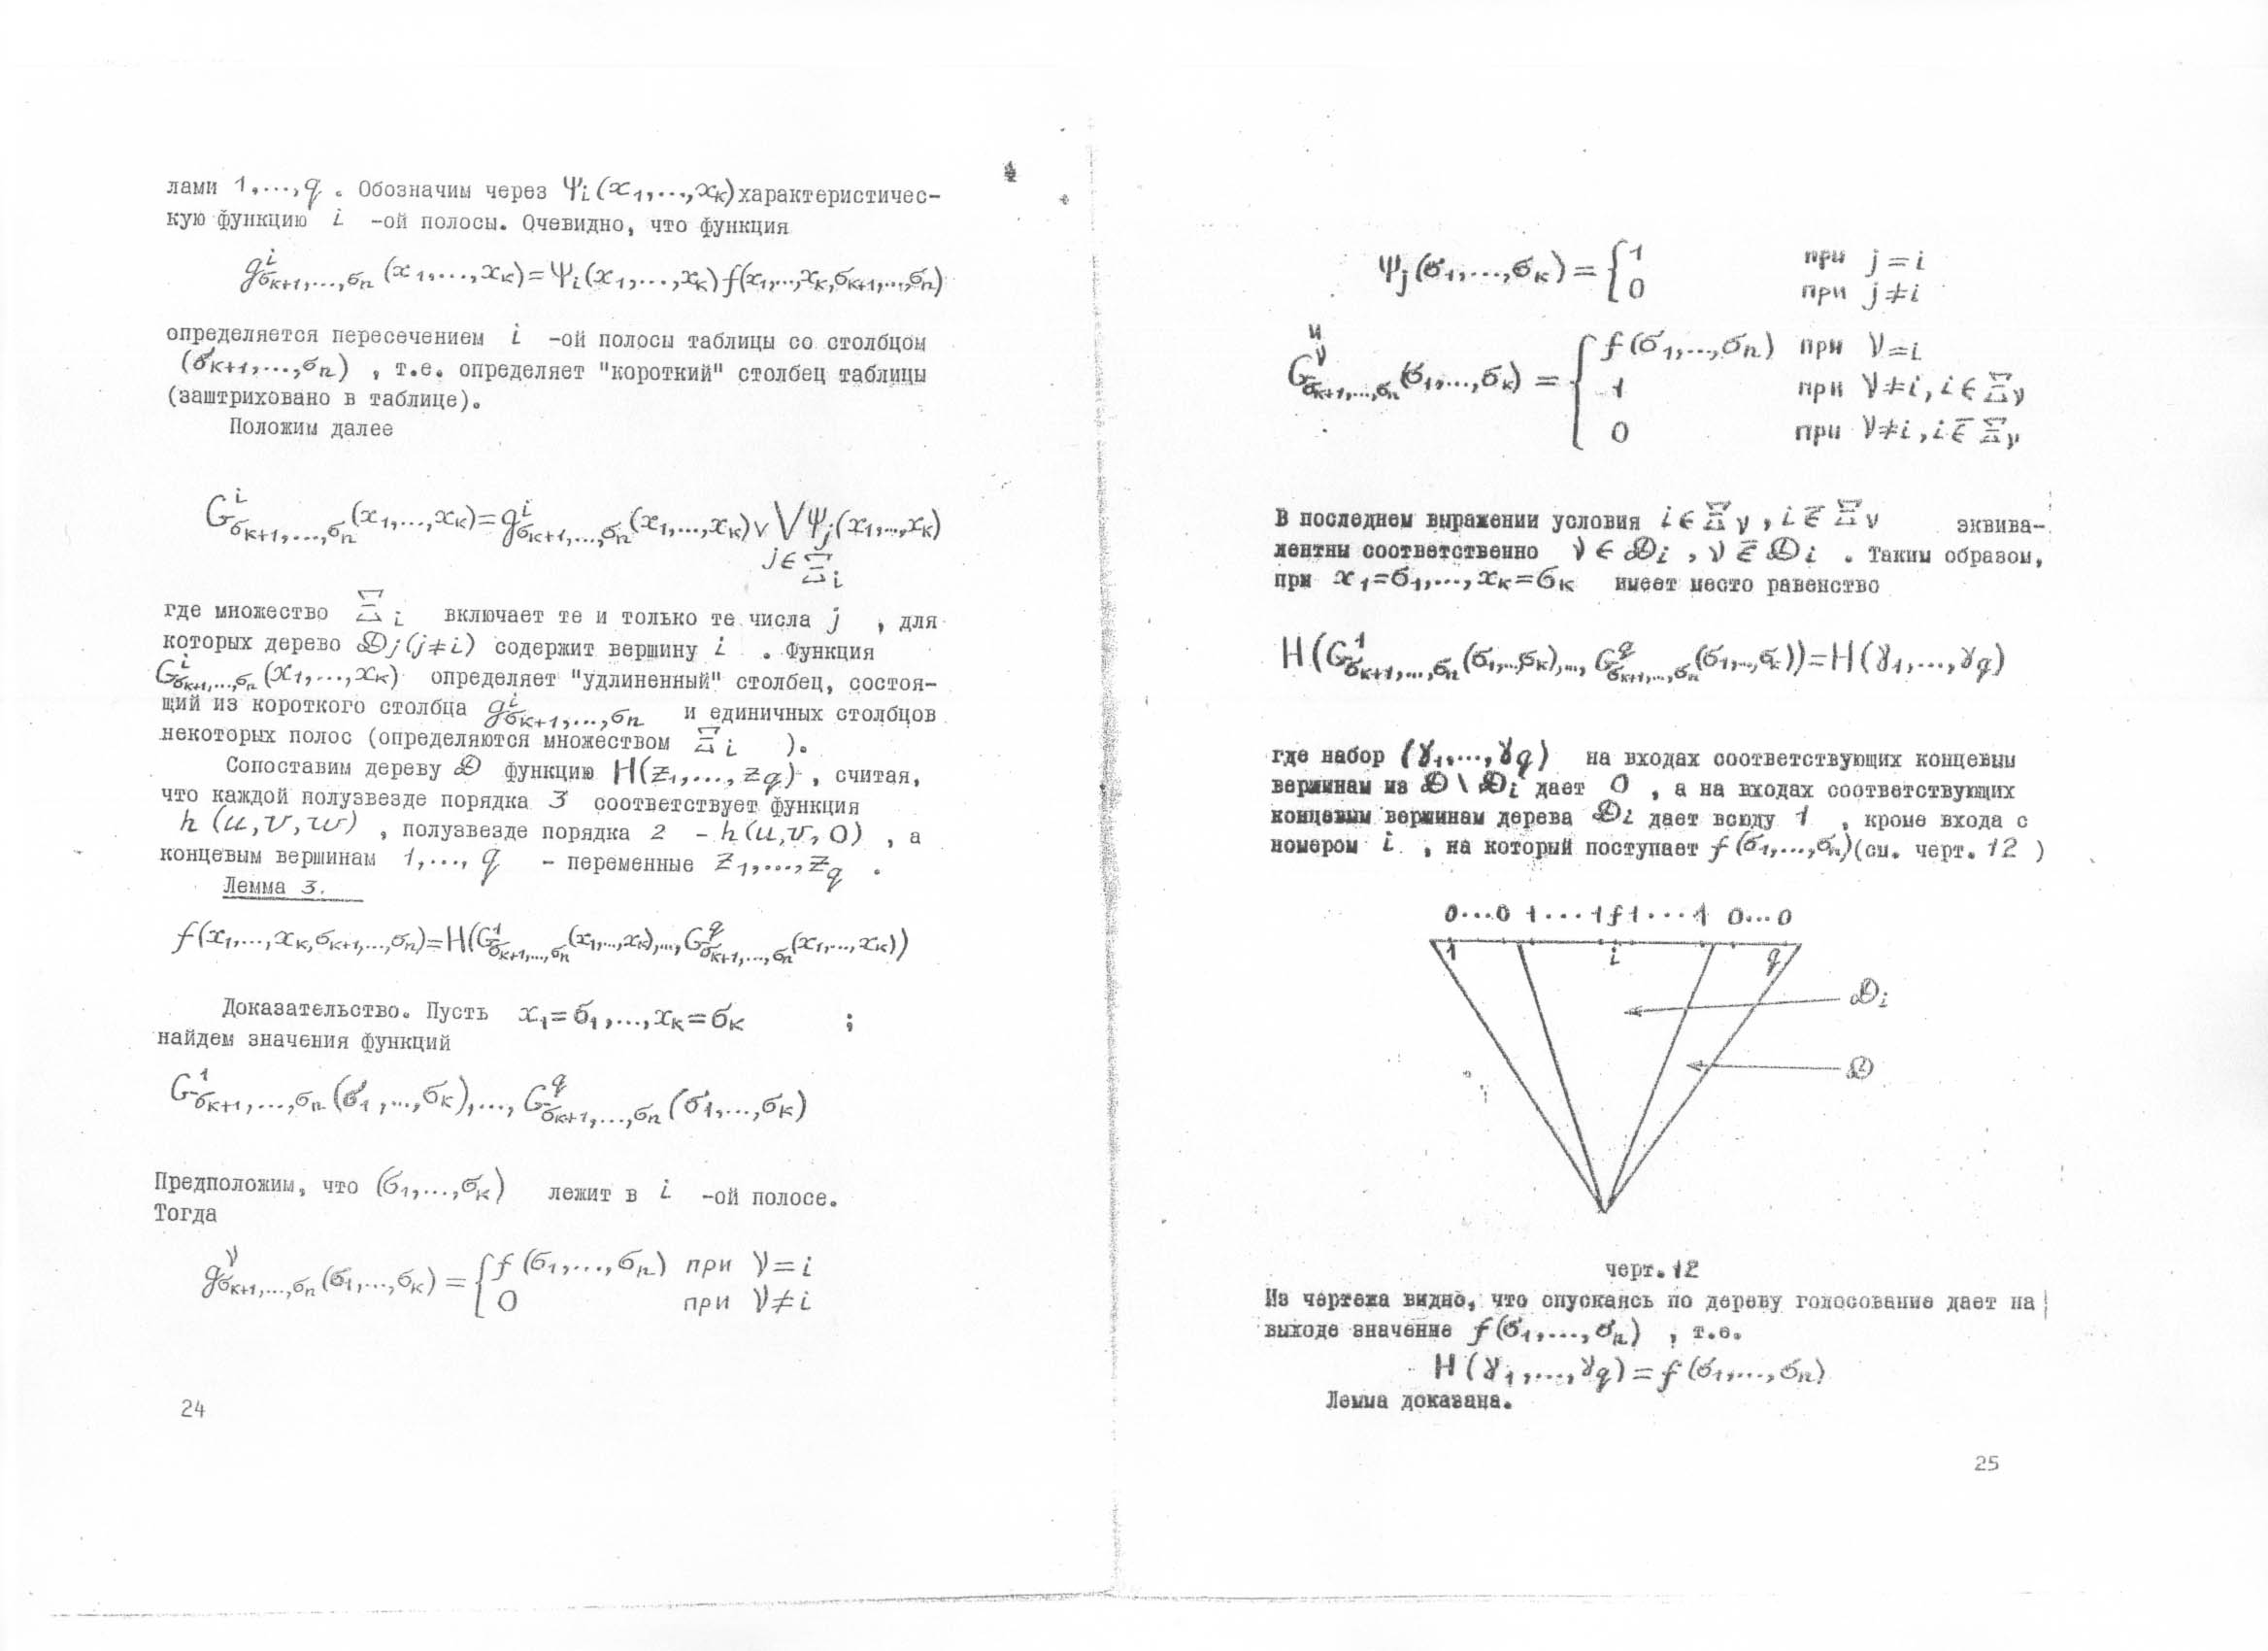 лами 1,...,q . Обозначим через Ψi(x1,...,xк)характеристичес-
кую функцию i -ой полосы. Очевидно, что функция
g^i_{σк+1,...,σn} (x1,...,xк)=Ψi(x1,...,xк)f(x1,...,xк,σк+1,...,σn)
определяется пересечением i -ой полосы таблицы со столбцом
(σк+1,...,σn) , т.е. определяет "короткий" столбец таблицы
(заштриховано в таблице).
Положим далее
G^i_{σк+1,...,σn}(x1,...,xк)=g^i_{σк+1,...,σn}(x1,...,xк)∨⋁Ψj(x1,...,xк)
j∈Ξi
где множество Ξi включает те и только те числа j , для
которых дерево 𝒟j(j≠i) содержит вершину i . Функция
G^i_{σк+1,...,σn}(x1,...,xк) определяет "удлиненный" столбец, состоя-
щий из короткого столбца g^i_{σк+1,...,σn} и единичных столбцов
некоторых полос (определяются множеством Ξi ).
Сопоставим дереву 𝒟 функцию H(z1,...,zq) , считая,
что каждой полузвезде порядка 3 соответствует функция
h(u,v,w) , полузвезде порядка 2 - h(u,v,0) , а
концевым вершинам 1,..., q - переменные z1,...,zq .
Лемма 3.
f(x1,...,xк,σк+1,...,σn)=H(G^1_{σк+1,...,σn}(x1,...,xк),...,G^q_{σк+1,...,σn}(x1,...,xк))
Доказательство. Пусть x1=σ1,...,xк=σк ;
найдем значения функций
G^1_{σк+1,...,σn}(σ1,...,σк),..., G^q_{σк+1,...,σn}(σ1,...,σк)
Предположим, что (σ1,...,σк) лежит в i -ой полосе.
Тогда
g^ν_{σк+1,...,σn}(σ1,...,σк) = { f(σ1,...,σn) при ν=i
0 при ν≠i
24
Ψj(σ1,...,σк) = { 1 при j=i
0 при j≠i
и
G^ν_{σк+1,...,σn}(σ1,...,σк) = { f(σ1,...,σn) при ν=i
1 при ν≠i, i∈Ξν
0 при ν≠i, i∈̄Ξν
В последнем выражении условия i∈Ξν , i∈̄Ξν эквива-
лентны соответственно ν∈𝒟i , ν∈̄𝒟i . Таким образом,
при x1=σ1,...,xк=σк имеет место равенство
H(G^1_{σк+1,...,σn}(σ1,...,σк),..., G^q_{σк+1,...,σn}(σ1,...,σк))=H(γ1,...,γq)
где набор (γ1,...,γq) на входах соответствующих концевым
вершинам из 𝒟\𝒟i дает 0 , а на входах соответствующих
концевым вершинам дерева 𝒟i дает всюду 1 , кроме входа с
номером i , на который поступает f(σ1,...,σn)(см. черт. 12 )
0...0 1...1f1...1 0...0
1 i q
𝒟i
𝒟
черт.12
Из чертежа видно, что спускаясь по дереву голосование дает на
выходе значение f(σ1,...,σn) , т.е.
H(γ1,...,γq)=f(σ1,...,σn)
Лемма доказана.
25